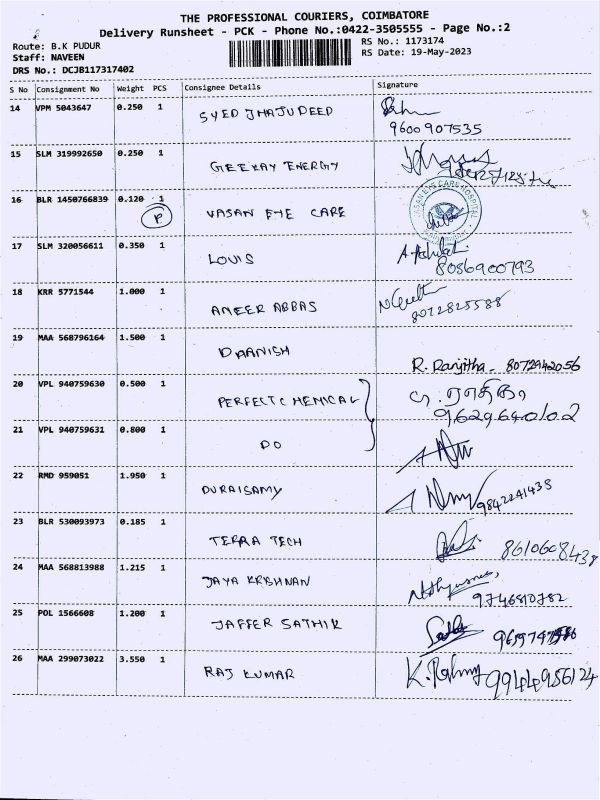 THE PROFESSIONAL COURIERS, COIMBATORE
Delivery Runsheet - PCK - Phone No.:0422-3505555 - Page No.:2
Route: B.K PUDUR
RS No.: 1173174
Staff: NAVEEN
RS Date: 19-May-2023
DRS No.: DCJB117317402
S No Consignment No Weight PCS Consignee Details Signature
14 VPM 5043647 0.250 1 SYED JHAJUDEED
9600907535
15 SLM 319992650 0.250 1 GEEKAY ENERGY
16 BLR 1450766839 0.120 1 VASAN EYE CARE
P
17 SLM 320056611 0.350 1 LOUIS
8086900793
18 KRR 5771544 1.000 1 AMEER ABBAS
8072825588
19 MAA 568796164 1.500 1 DAANISH
R. Ranjitha - 8072942056
20 VPL 940759630 0.500 1 PERFECT CHEMICAL
9629640102
21 VPL 940759631 0.800 1 DO
22 RMD 959051 1.950 1 DURAISAMY
9842241438
23 BLR 530093973 0.185 1 TERRA TECH
8610608438
24 MAA 568813988 1.215 1 JAYA KRISHNAN
9746810782
25 POL 1566608 1.200 1 JAFFER SATHIK
26 MAA 299073022 3.550 1 RAJ KUMAR
9944956124